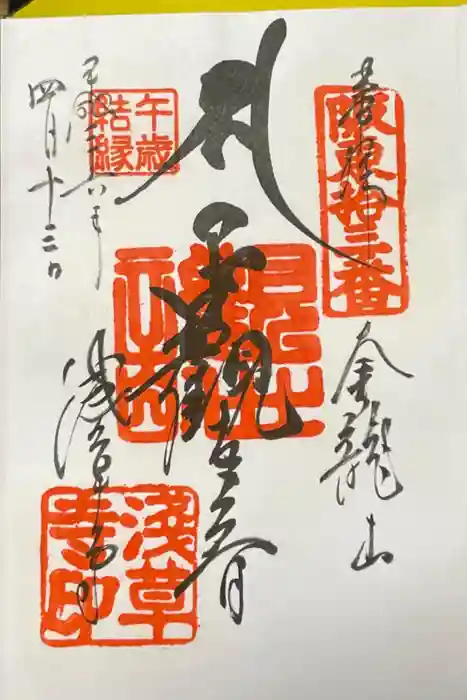 奉拝
阪東拾三番
金龍山
聖観世音
浅草寺
令和八年
四月十三日
午歳
結縁
淺草
寺印